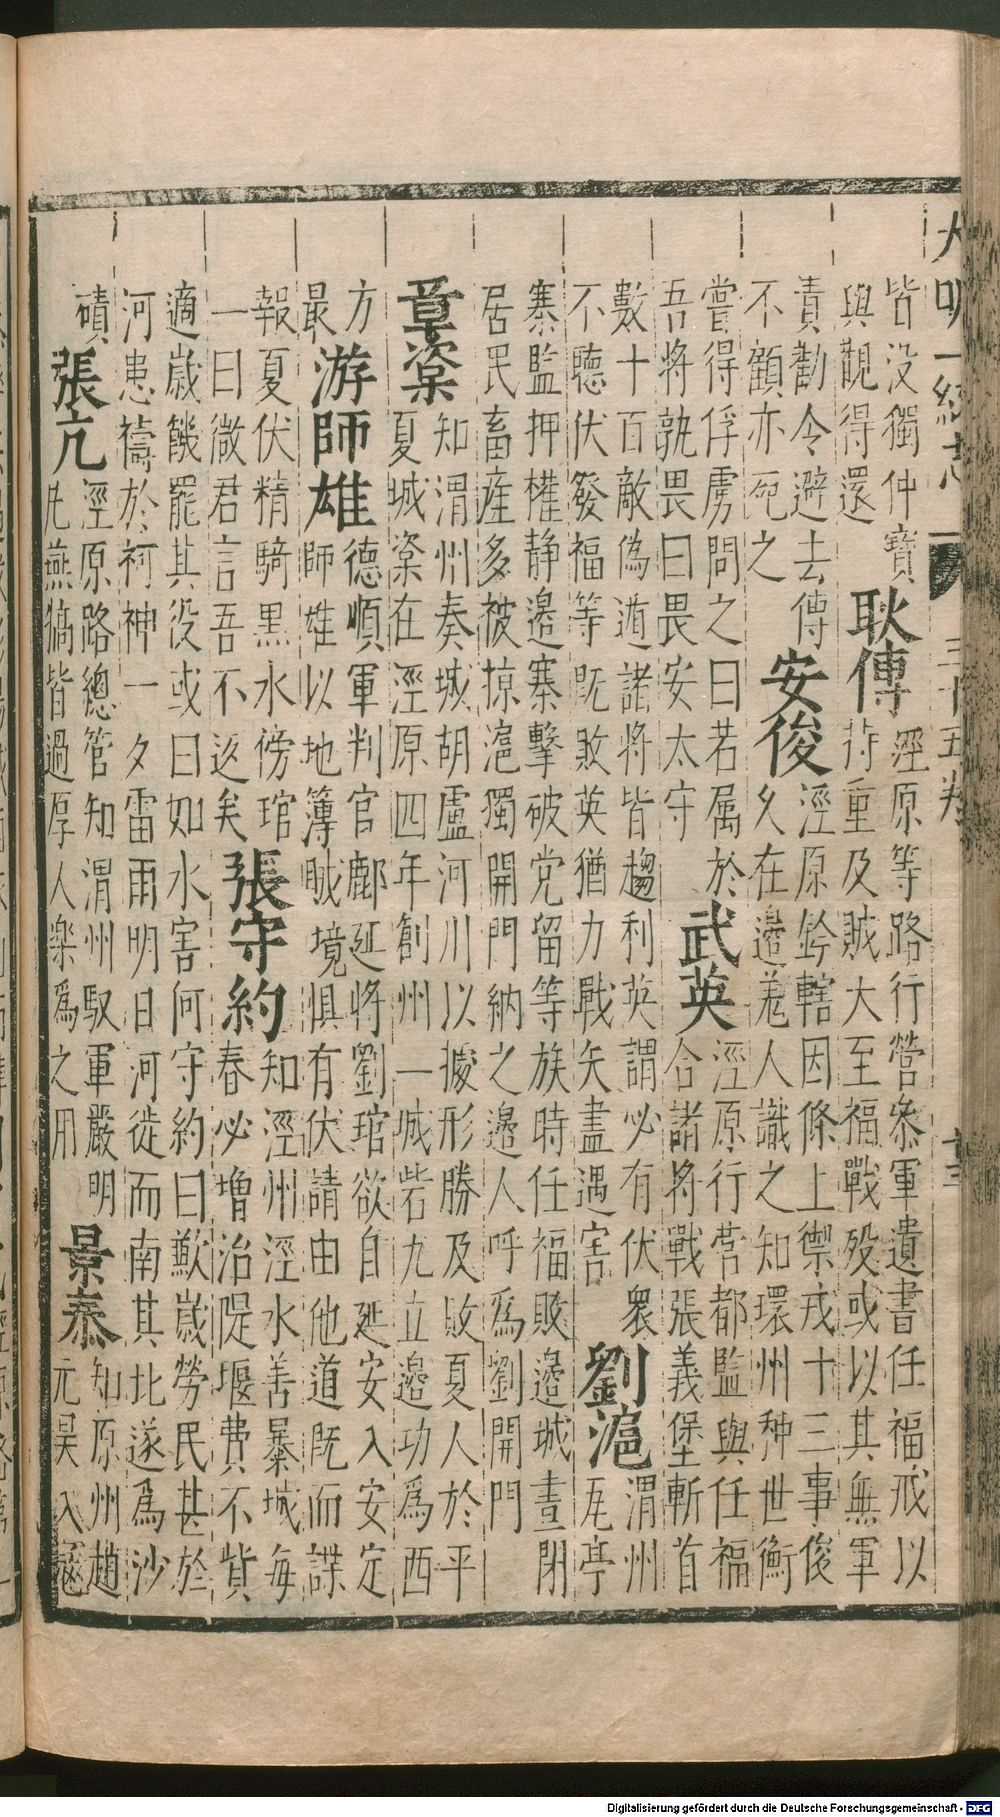 大明一統志
三十五卷
皆没獨仲寶
與觀得還
耿傅
涇原等路行營叅軍遺書任福戒以
持重及賊大至福戰殁或以其無軍
責勸令避去傅
不顧亦死之
安俊
涇原鈐轄因條上禦戎十三事俊
久在邊羗人識之知環州种世衡
嘗得俘虜問之曰若属於
吾將孰畏曰畏安太守
武英
涇原行营都監與任福
合諸將戰張義堡斬首
數十百敵偽遁諸將皆趨利英謂必有伏衆
不聽伏發福等既敗英猶力戰矢盡遇害
劉滬
渭州
瓦亭
寨監押權静邊寨擊破党留等族時任福敗邊城晝閉
居民畜産多被掠滬獨開門納之邊人呼為劉開門
章楶
知渭州奏城胡盧河川以據形勝及敗夏人於平
夏城楶在涇原四年創州一城砦九立邊功為西
方
最
游師雄
德順軍判官鄜延将劉琯欲自延安入安定
師雄以地薄賊境惧有伏請由他道既而諜
報夏伏精騎黑水傍琯
一曰微君言吾不返矣
張守約
知涇州涇水善暴城每
春必增治隄堰費不貲
適歲饑罷其役或曰如水害何守約曰歉歲勞民甚於
河患禱於祠神一夕雷雨明日河徙而南其北遂為沙
磧
張亢
涇原路總管知渭州馭軍嚴明
凡燕犒皆過厚人楽為之用
景泰
知原州趙
元昊入冦
Digitalisierung gefördert durch die Deutsche Forschungsgemeinschaft - DFG